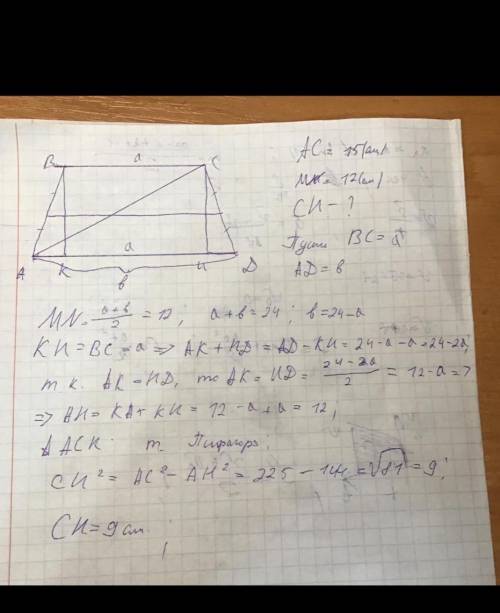 B a C
AC = 15(см)
MN = 12(см)
CH - ?
Пусть BC = a
AD = b
a
A K H D
b
MN = a+b/2 = 12, a+b = 24; b = 24-a
KH = BC = a => AK + HD = AD - KH = 24-a-a = 24-2a;
т к. AK = HD, то AK = HD = 24-2a/2 = 12-a =>
=> AH = KA + KH = 12-a+a = 12;
ΔACH т. Пифагора:
CH² = AC² - AH² = 225 - 144 = √81 = 9;
CH = 9 см